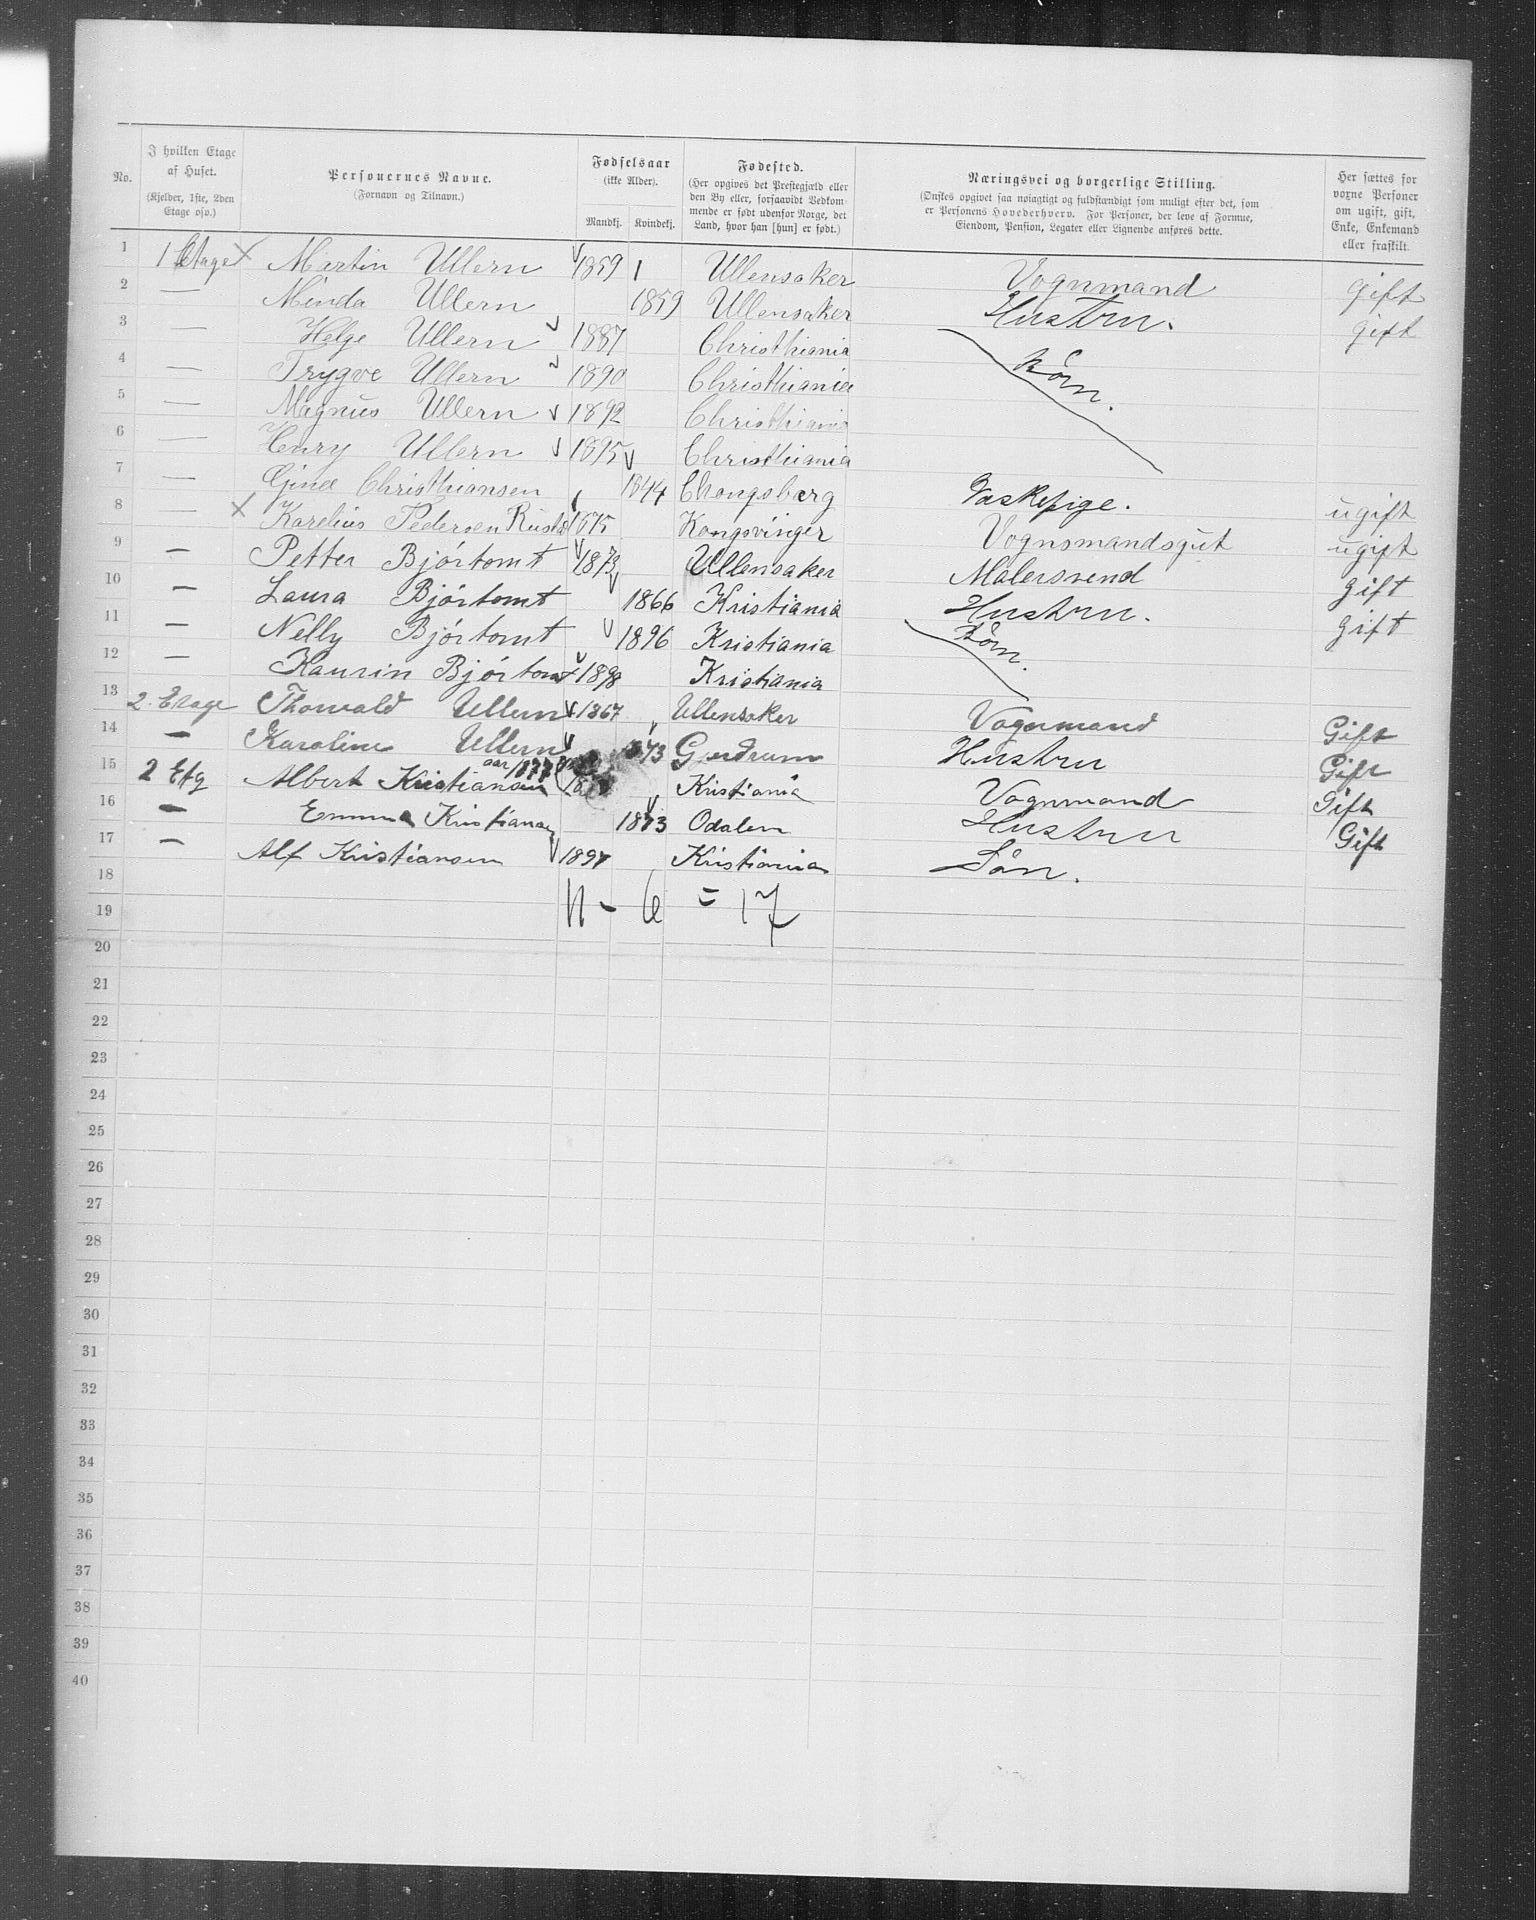 No.
I hvilken Etage af Huset.
(Kjelder, 1ste, 2den Etage osv.)
Personernes Navne.
(Fornavn og Tilnavn.)
Fødselsaar
(ikke Alder).
Mandkj. Kvindekj.
Fødested.
(Her opgives det Prestegjæld eller den By eller, forsaavidt Vedkommende er født udenfor Norge, det Land, hvor han [hun] er født.)
Næringsvei og borgerlige Stilling.
(Ønskes opgivet saa nøiagtigt og fuldstændigt som muligt efter det, som er Personens Hovederhverv. For Personer, der leve af Formue, Eiendom, Pension, Legater eller Lignende anføres dette.
Her sættes for voxne Personer om ugift, gift, Enke, Enkemand eller fraskilt.
1 1 Etage x Martin Ullern 1859 Ullensaker Vognmand gift
2 — Minda Ullern 1859 Ullensaker Hustru. gift
3 — Helge Ullern 1887 Christhiania
4 — Trygve Ullern 1890 Christhiania
5 — Magnus Ullern 1892 Christhiania
6 — Henry Ullern 1895 Christhiania
7 — Gina Christhiansen 1844 Chongsberg Vaskepige. ugift
8 — x Karelius Pedersen 1875 Kongsvinger Vognsmandsgut ugift
9 — Petter Bjórtomt 1873 Ullensaker Malersvend gift
10 — Laura Bjórtomt 1866 Kristiania Hustru. gift
11 — Nelly Bjórtomt 1896 Kristiania
12 — Kaurin Bjórtomt 1898 Kristiania
13 2. Etage Thorvald Ullern 1867 Ullensaker Vognmand Gift
14 — Karoline Ullern 1873 Gjerdrum Hustru Gift
15 2 Etg Albert Kristiansen aar 1877 Kristiania Vognmand Gift
16 — Emma Kristiansen 1873 Odalen Hustru Gift
17 — Alf Kristiansen 1897 Kristiania Sån.
18
19 11 - 6 = 17
20
21
22
23
24
25
26
27
28
29
30
31
32
33
34
35
36
37
38
39
40